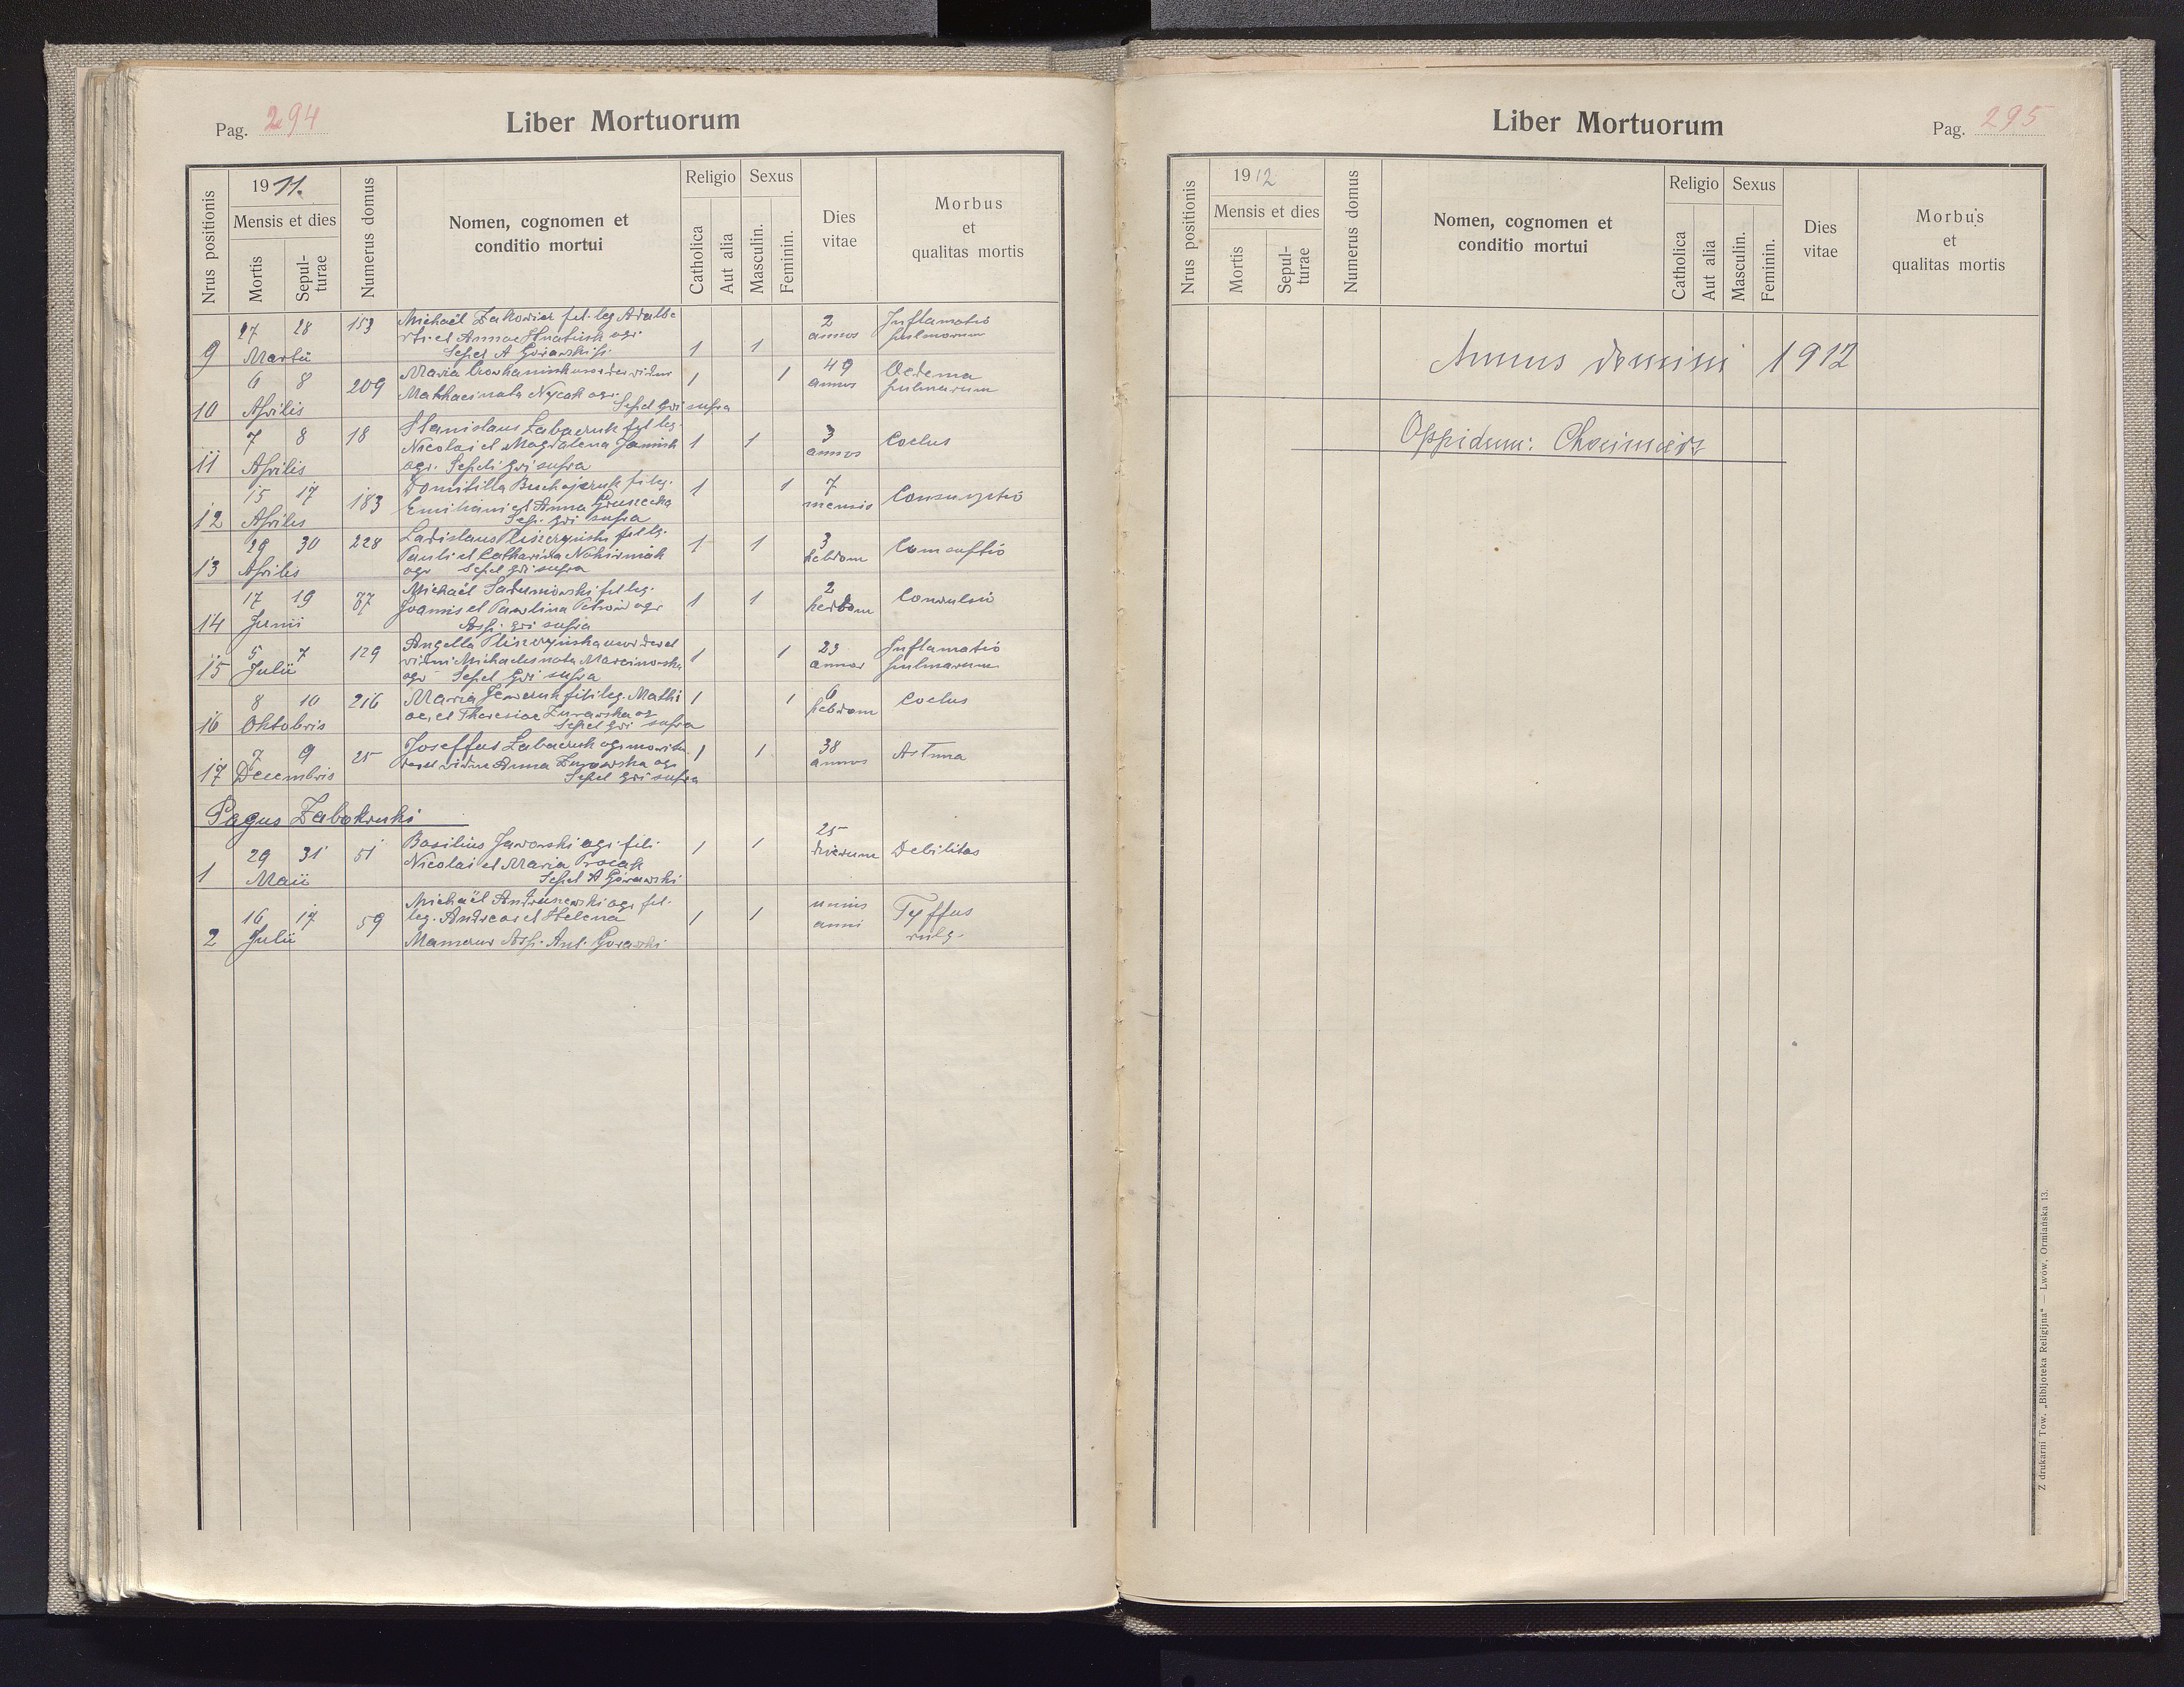 Pag. 294
Liber Mortuorum
Nrus positionis
1911.
Mensis et dies
Mortis
Sepulturae
Numerus domus
Nomen, cognomen et
conditio mortui
Religio
Catholica
Aut alia
Sexus
Masculin.
Feminin.
Dies
vitae
Morbus
et
qualitas mortis
9 27 28 Martii 153 Michaël Zakowicz fil. leg Adalbe
rti et Annae Hnatiuk agr.
Sepel A Górawski 1 1 2 annos Inflamatio pulmonum
10 6 8 Aprilis 209 Maria
Mathaei nata Nycak agr.
Sepel qui supra 1 1 49 annos Oedema pulmonum
11 7 8 Aprilis 18 Stanislaus Labaczuk fil leg.
Nicolai et Magdalena Jaminik
agr. Sepeli qui supra 1 1 3 annos Coclus
12 15 17 Aprilis 183 Domitilla Buchajczuk fi leg.
Emiliani et Anna Gruszecka
Sep. qui supra 1 1 7 mensis Consumptio
13 29 30 Aprilis 228 Ladislaus Pliszczyński fil lg.
Pauli et Catharina Nahirniak
agr sepel qui supra 1 1 3 hebdom Comsuptio
14 17 19 Junii 77 Michaël Sadunowski fil leg.
Joannis et Pawlina Petrów agr
Assp. qui supra 1 1 2 hebdom Convulsio
15 5 7 Julii 129 Angella Pliszczyńska uxor derel
vidui Michaelis nata Marcinowska
agr Sepel qui supra 1 1 23 annos Inflamatio pulmonum
16 8 10 Oktobris 216 Maria Jewczuk fili leg. Mathi
ae, et Theresiae Żurawska ag
Sepel qui supra 1 1 6 hebdom Coclus
17 7 9 Decembris 25 Joseffus Labaczuk agr
vidua Anna Żurawska agr
Sepel qui supra 1 1 38 annos Astma
Pagus Zabokruki
1 29 31 Maii 51 Basilius Jaworski agr. fili.
Nicolai et Maria Procak
Sepel A Górawski 1 1 25 dierum Debilitas
2 16 17 Julii 59 Michaël Andruszewski agr fil.
leg. Andreae et Helena
Mamczur Assp. Ant. Gorawski 1 1 unius anni Tyffus vulg.
Liber Mortuorum
Pag. 295
Nrus positionis
1912
Mensis et dies
Mortis
Sepulturae
Numerus domus
Nomen, cognomen et
conditio mortui
Religio
Catholica
Aut alia
Sexus
Masculin.
Feminin.
Dies
vitae
Morbus
et
qualitas mortis
Annus domini 1912
Oppidum: Chocimierz
Z drukarni Tow. „Bibljoteka Religijna" — Lwów, Ormiańska 13.